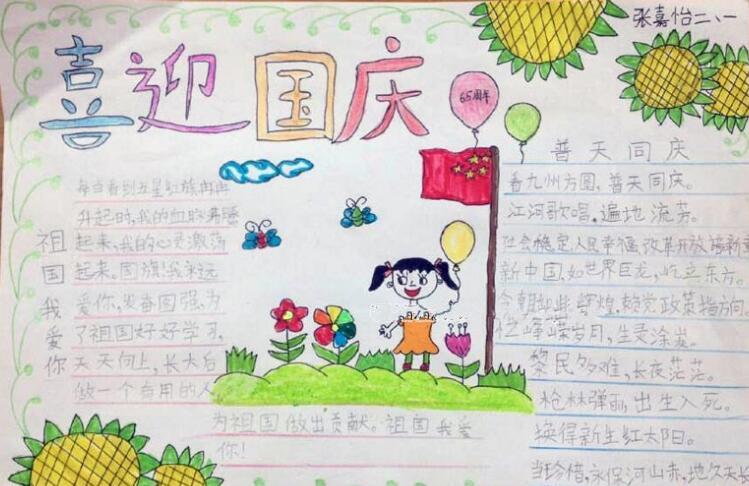 张嘉怡二、一
喜迎国庆
65周年
祖国我爱你
每当看到五星红旗冉冉
升起时，我的血脉
起来，我的心灵激荡
起来，国旗！我永远
爱你，发奋图强，为
了祖国好好学习，
天天向上，长大后
做一个有用的人
为祖国做出贡献。祖国我爱
你！
普天同庆
看九州方圆，普天同庆。
江河歌唱，遍地流芳。
社会稳定人民幸福，改革开放
新中国，如世界巨龙，屹立东方。
今朝 辉煌，赖党政策指方向
峥嵘岁月，生灵涂炭。
黎民多难，长夜茫茫。
枪林弹雨，出生入死。
换得新生红太阳。
当珍惜，永保河山赤，地久天长